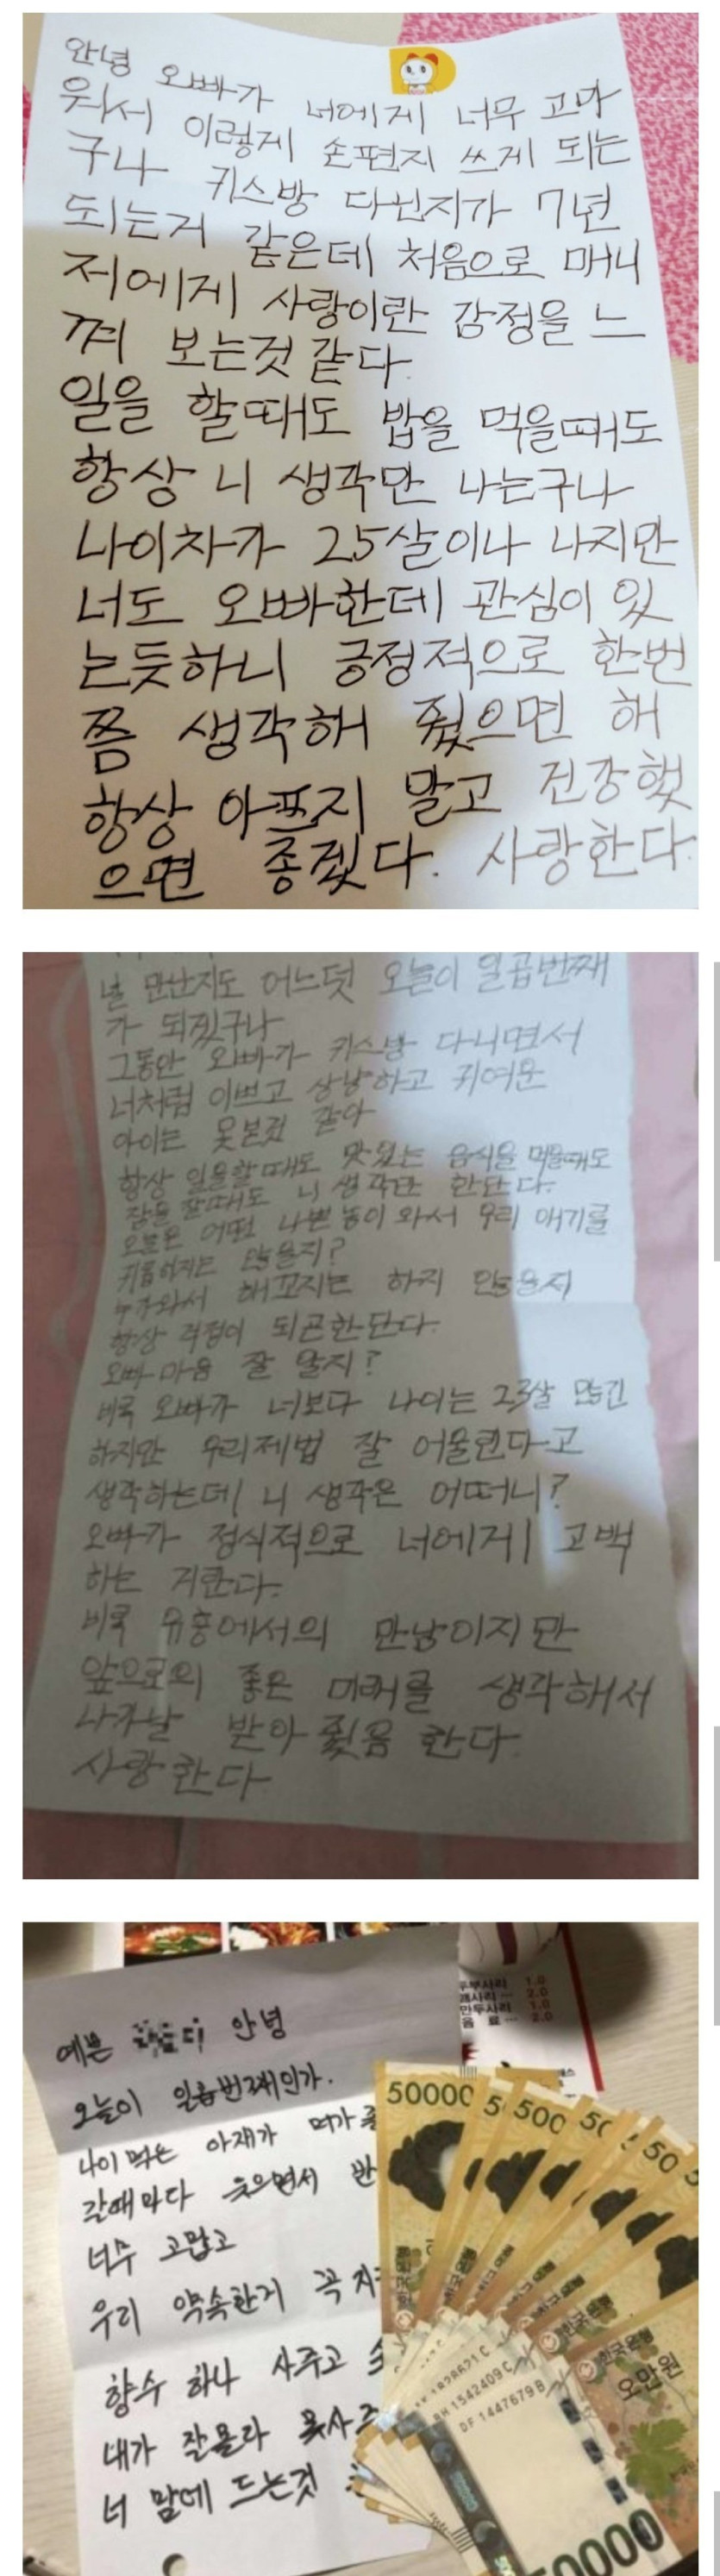 안녕 오빠가 너에게 너무 고마
워서 이렇게 손편지 쓰게 되는
구나 키스방 다닌지가 7년
되는거 같은데 처음으로 매니
저에게 사랑이란 감정을 느
껴 보는것 같다.
일을 할때도 밥을 먹을때도
항상 니 생각만 나는구나
나이차가 25살이나 나지만
너도 오빠한데 관심이 있
는듯하니 긍정적으로 한번
쯤 생각해 줬으면 해
항상 아프지 말고 건강했
으면 좋겠다. 사랑한다.
널 만난지도 어느덧 오늘이 일곱번째
가 되겠구나
그동안 오빠가 키스방 다니면서
너처럼 이쁘고 상냥하고 귀여운
아이는 못본것 같아
항상 일을할때도 맛있는 음식을 먹을때도
잠을 잘때도 니 생각만 한단다.
오늘은 어떤 나쁜놈이 와서 우리 애기를
않을지?
누가와서 해꼬지는 하지 않을지
항상 걱정이 되곤한단다.
오빠 마음 잘 알지?
비록 오빠가 너보다 나이는 23살 많긴
하지만 우리제법 잘 어울린다고
생각하는데 니 생각은 어떠니?
오빠가 정식적으로 너에게 고백
하는 거란다.
비록 유흥에서의 만남이지만
앞으로의 좋은 미래를 생각해서
받아줬음 한다.
사랑한다
예쁜 안녕
오늘이 일곱번째인가.
나이 먹은 아재가 뭐가 좋
갈때마다 웃으면서 반
너무 고맙고
우리 약속한거 꼭 지켜
향수 하나 사주고
내가 잘몰라 못사주
너 맘에 드는것
두부사리 1.0
2.0
만두사리 1.0
음 료 2.0
50000
5
500
50
50
한국은행
한국은행
오만원
1542409C
DF 1447679B